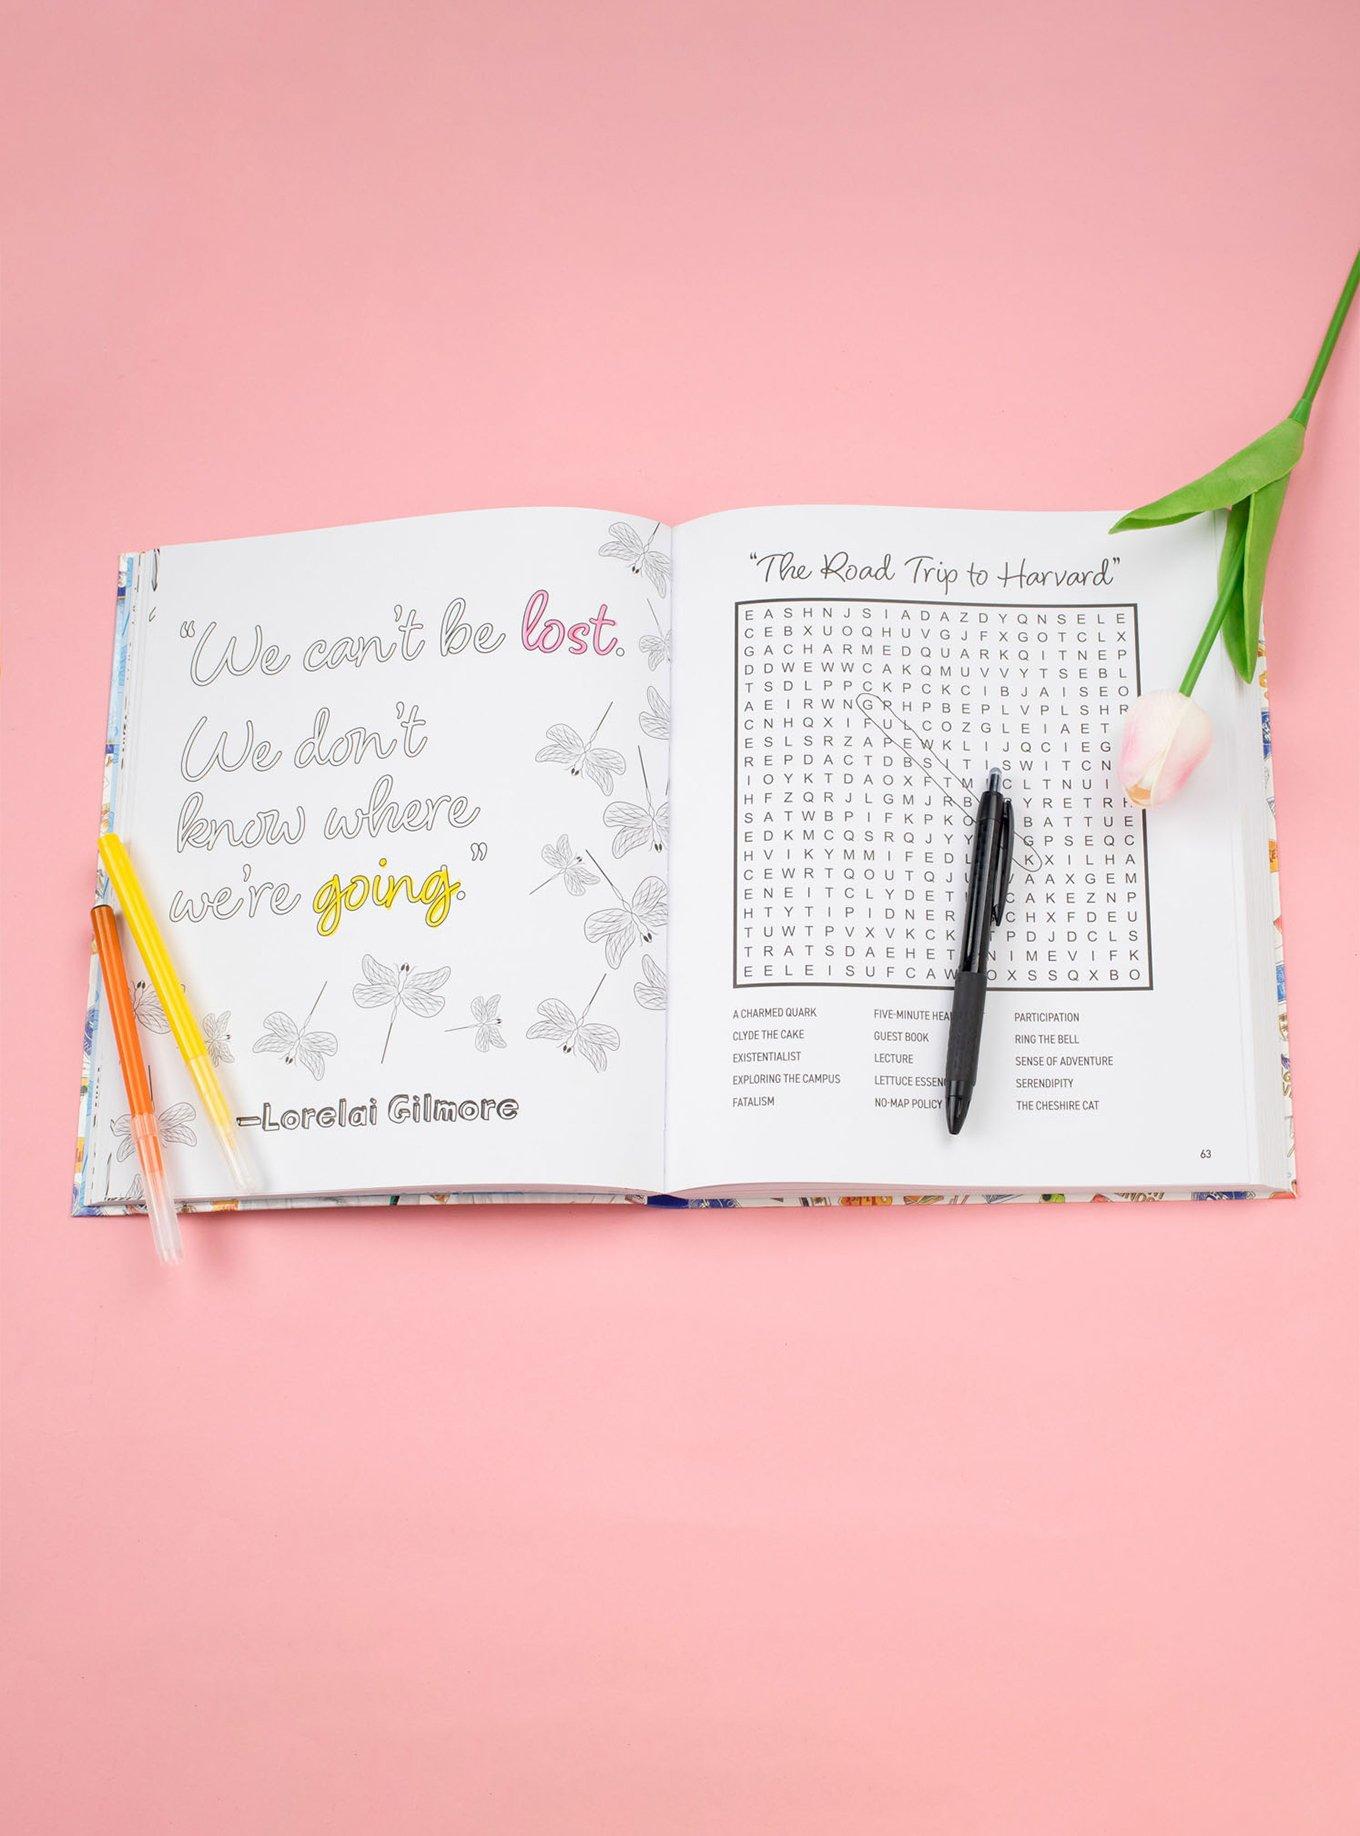 “We can't be lost.
We don't
know where
we're going.”
—Lorelai Gilmore
“The Road Trip to Harvard”
E A S H N J S I A D A Z D Y Q N S E L E
C E B X U O Q H U V G J F X G O T C L X
G A C H A R M E D Q U A R K Q I T N E P
D D W E W W C A K Q M U V V Y T S E B L
T S D L P P C K P C K C I B J A I S E O
A E I R W N G P H P B E P L V P L S H R
C N H Q X I F U L C O Z G L E I A E T
E S L S R Z A P E W K L I J Q C I E G
R E P D A C T D B S I T I S W I T C N
I O Y K T D A O X F T M C L T N U I
H F Z Q R J L G M J R B Y R E T R
S A T W B P I F K P K B A T T U E
E D K M C Q S R Q J Y Y G P S E Q C
H V I K Y M M I F E D L K X I L H A
C E W R T Q O U T Q J U A A X G E M
E N E I T C L Y D E T C A K E Z N P
H T Y T I P I D N E R C H X F D E U
T U W T P V X V K C K T P D J D C L S
T R A T S D A E H E T N I M E V I F K
E E L E I S U F C A W O X S S Q X B O
A CHARMED QUARK
CLYDE THE CAKE
EXISTENTIALIST
EXPLORING THE CAMPUS
FATALISM
FIVE-MINUTE
GUEST BOOK
LECTURE
LETTUCE
NO-MAP POLICY
PARTICIPATION
RING THE BELL
SENSE OF ADVENTURE
SERENDIPITY
THE CHESHIRE CAT
63